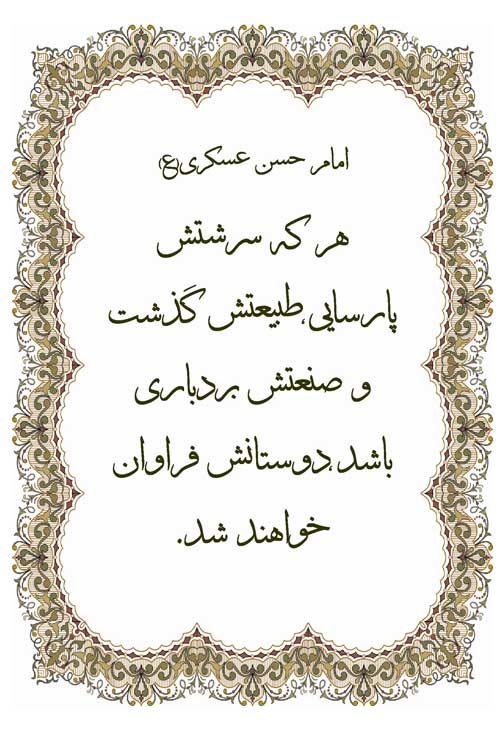 امام حسن عسکری(ع)
هر که سرشتش
پارسایی،طبیعتش گذشت
و صنعتش بردباری
باشد،دوستانش فراوان
خواهند شد.